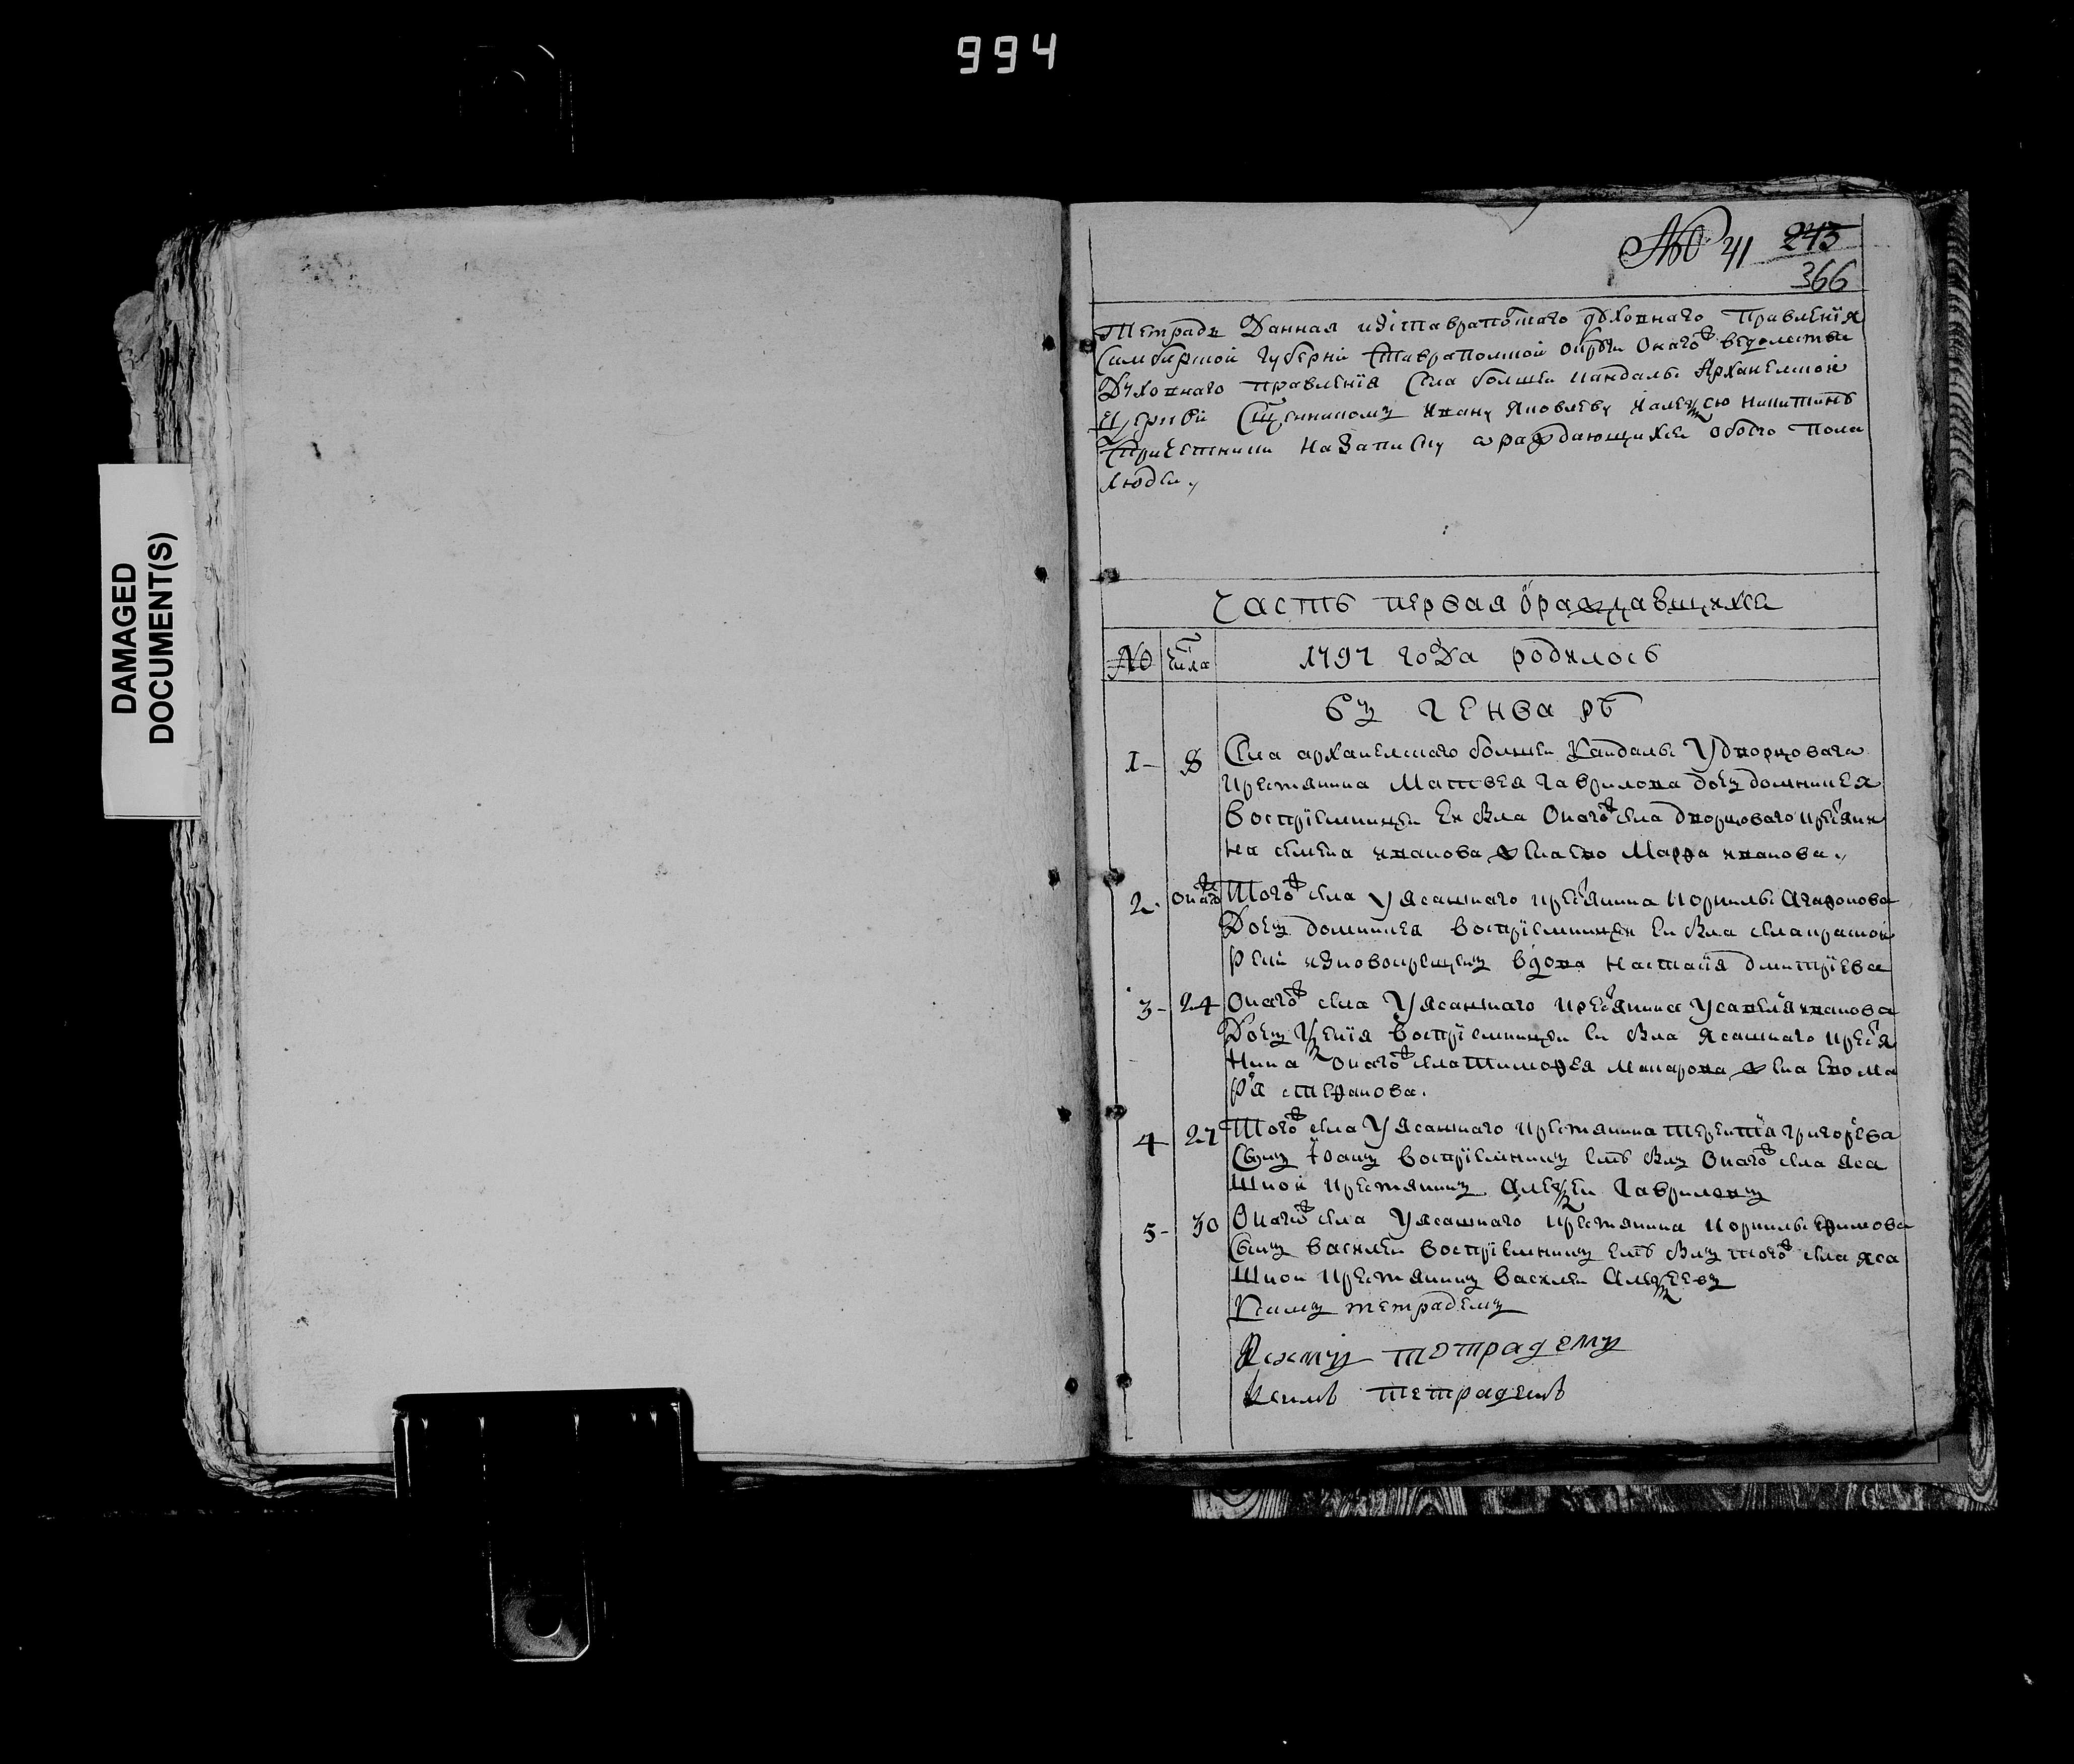 994
DAMAGED
DOCUMENT(S)
№ 41 243
366
Тетрадь Данная изставрапо́лскаго дꙋховнаго Правленїя
Симбирской губерни ставрополской округи Онагожъ ведомства
Духовнаго правленїя Села болшей кандалы Архангелской
церкви Священникомъ Ивану Яковлеву Иалеѯѣю Никитинꙋ
Спричетники На Записку араждающихся обоего пола
людей,
Часть первая ораждавшихся
№ числа 1797 года родилось
въ генварѣ
1- 8 Села архангелскаго болшей Кандалы Удворцовага
крестянина Матвея гаврилова дочь домникея
Воспрїемницей Ей была Онагожъ села дворцоваго крестьяни
на семена иванова жена Ево Марѳа иванова,
2. Онагожъ Тогожъ села Уясашнаго крестьянина корнилы Агаѳонова
Дочь домникея Воспрїемницей Ей была села
изновокрещенъ вдова Настасїя дмитрїева
3- 24 Онагожъ села Уясашнаго крестьянина Усавелѧ иванова
Дочь Воспрїемницей Ей была Ясашнаго крестья
нина Онагожъ села Тимоѳея Макарова жена Ево Ма
рья стеѳанова.
4 27 Тогожъ села Уясашнаго крестянина терентїя григорьева
Сынъ Їоаннъ Воспрїемникъ Емꙋ былъ Онагожъ села яса
шной крестянинъ Алеѯѣй Гавриловъ
5- 30 Онагожъ села Уясашнаго крестянина корнилы Еѳимова
Сынъ василей Воспрїемникъ Емꙋ былъ тогожъ села яса
шной крестянинъ василей Алеѯеевъ
тетрадемъ
тетрадемъ
тетрадемъ